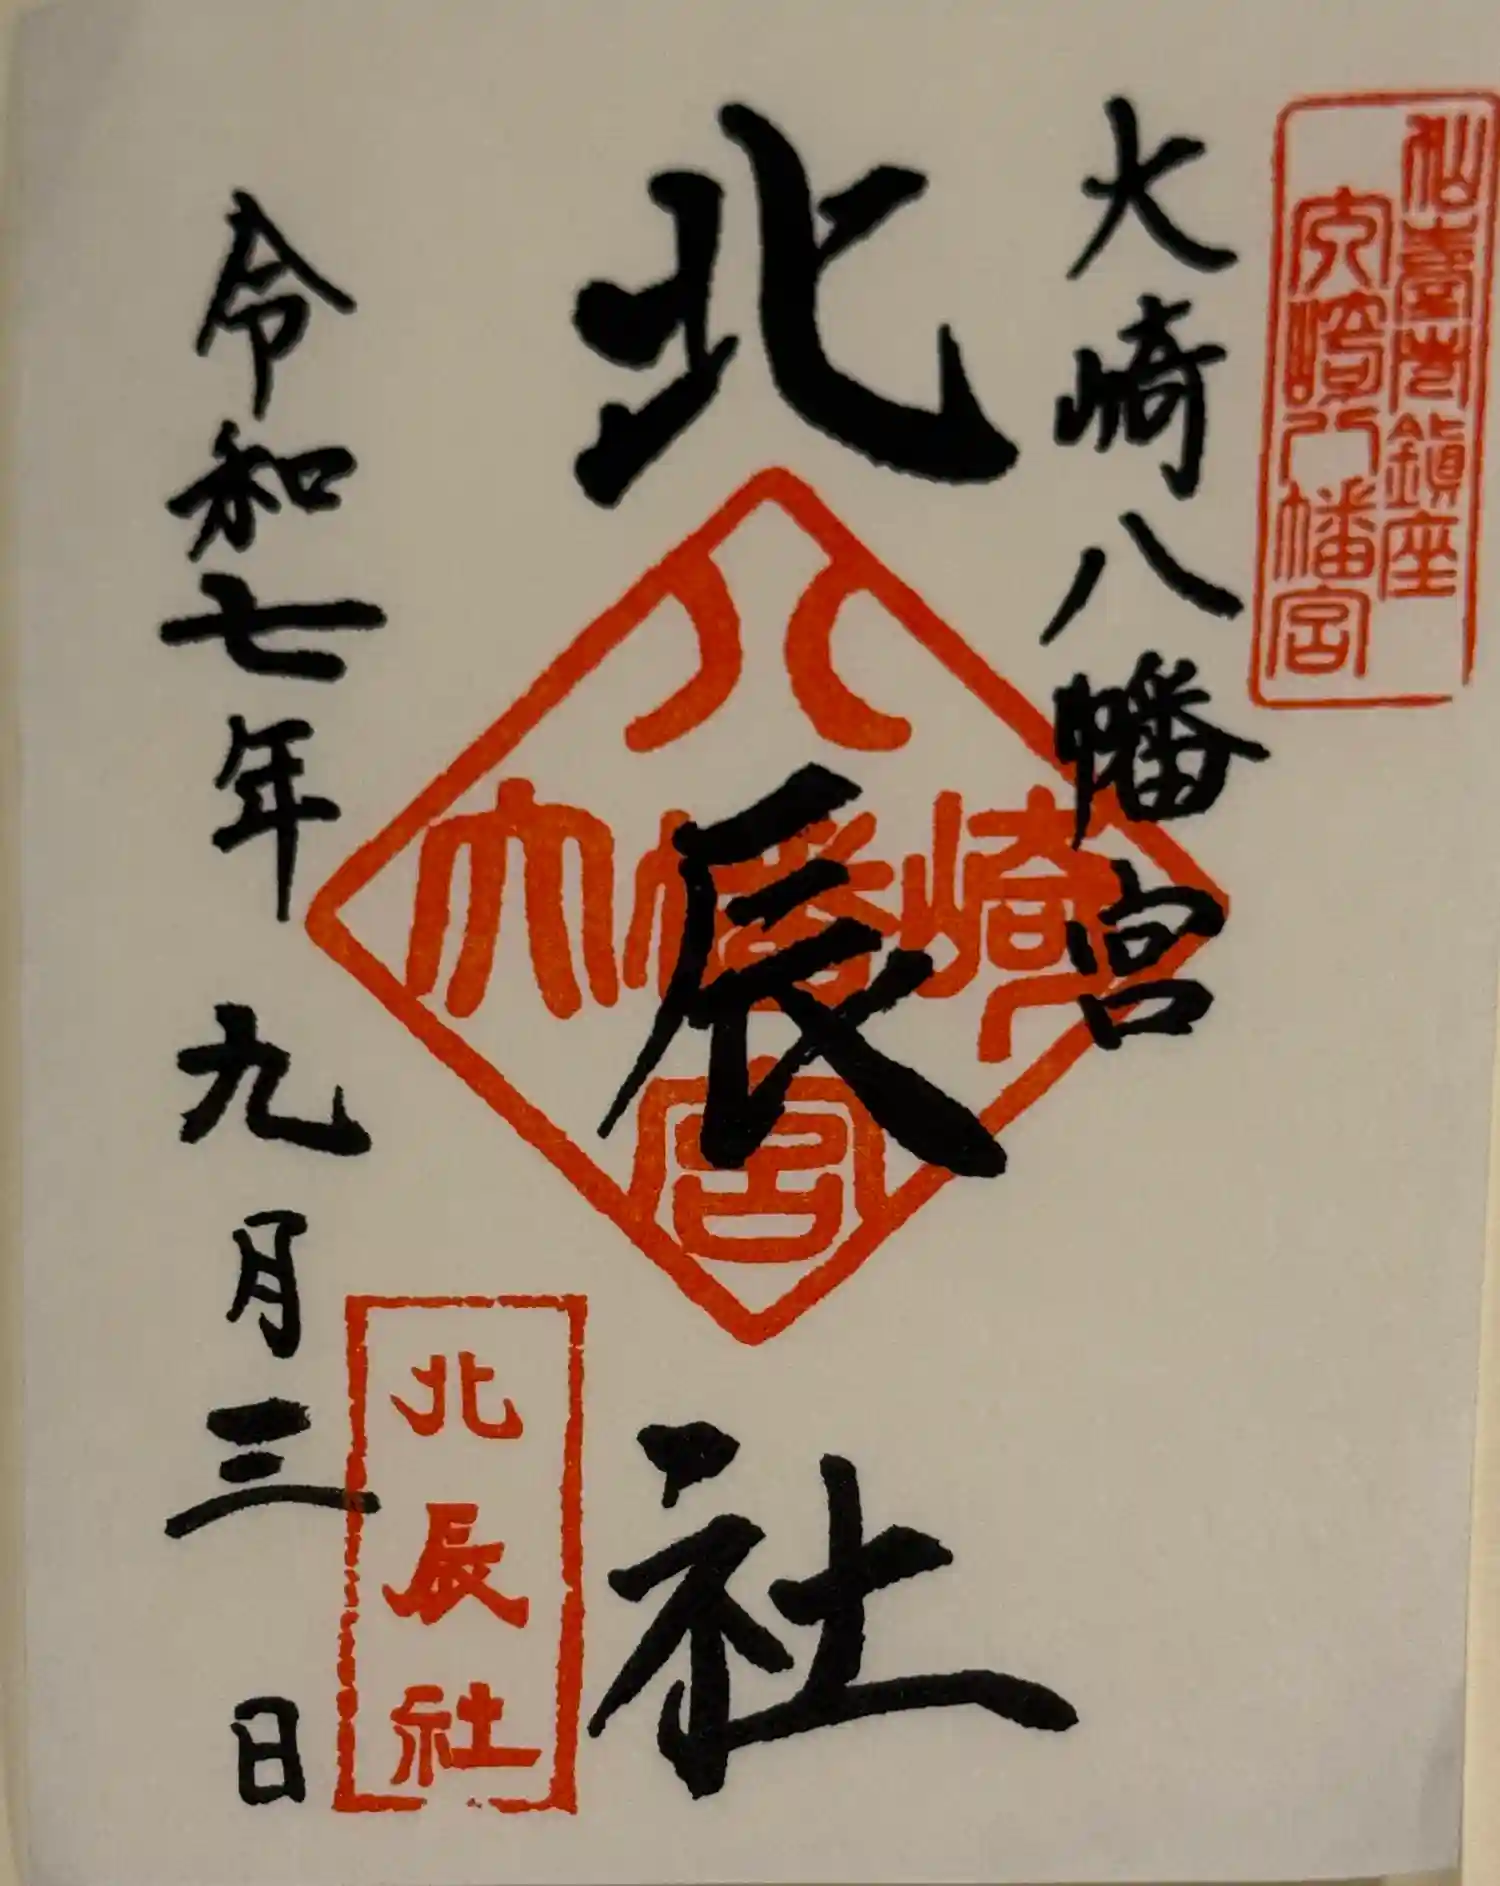 仙臺市鎮座
大崎八幡宮
大崎八幡宮
北辰社
八
大幡崎
宮
北辰社
令和七年九月三日